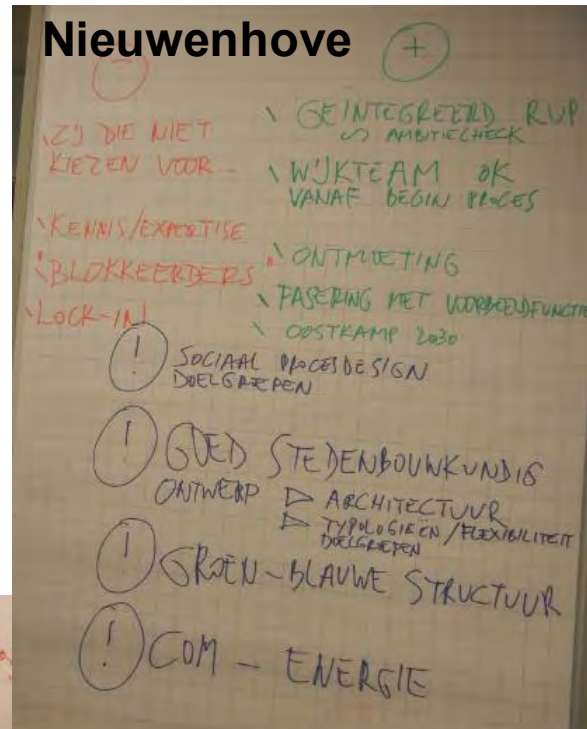 Nieuwenhove
-
\ ZIJ DIE NIET
KIEZEN VOOR
\ KENNIS/EXPERTISE
\ BLOKKEERDERS
\ LOCK-IN!
+
\ GEINTEGREERD RUP
AMBITIECHECK
\ WIJKTEAM OK
VANAF BEGIN PROCES
\ ONTMOETING
\ FASERING MET VOORBEELDFUNCTIE
\ OOSTKAMP 2030
! SOCIAAL PROCESDESIGN
DOELGROEPEN
! GOED STEDENBOUWKUNDIG
ONTWERP ▷ ARCHITECTUUR
▷ TYPOLOGIEËN/FLEXIBILITEIT
DOELGROEPEN
! GROEN-BLAUWE STRUCTUUR
! COM - ENERGIE